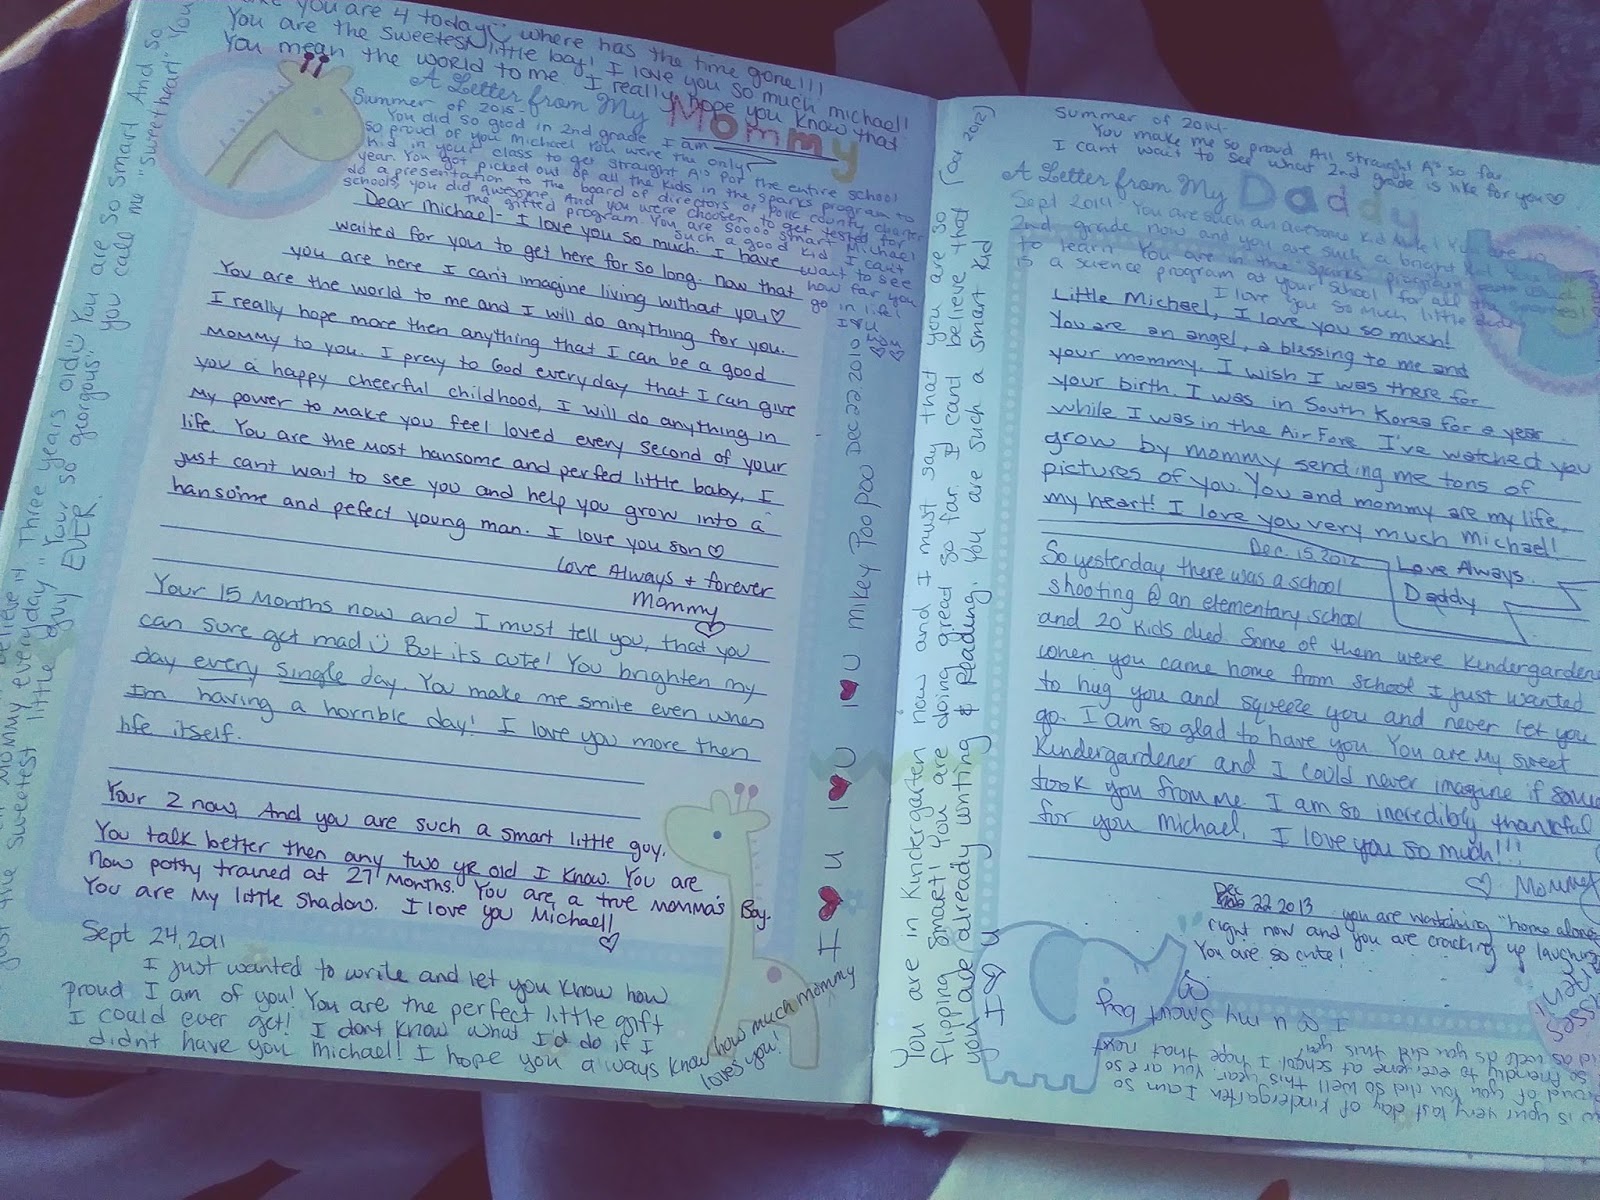 you are 4 today where has the time gone!!!
You are the sweetest little boy! I love you so much michael!
You mean the world to me. I really hope you know that
A Letter from My Mommy
Summer of 2015-
You did so good in 2nd grade. I am
so proud of you Michael. You were the only
kid in your class to get straight A's for the entire school
year. You got picked out of all the kids in the Sparks program to
do a presentation to the board of directors of Polk county charter
schools, you did awesome. And you were choosen to get tested for
the gifted program. You are soooo smart Michael
such a good kid I can't
wait to see
how far you
go in life!
I ♡ U
Dear Michael- I love you so much. I have
waited for you to get here for so long. now that
you are here I can't imagine living without you ♡
You are the world to me and I will do anything for you.
I really hope more then anything that I can be a good
mommy to you. I pray to God everyday that I can give
you a happy cheerful childhood, I will do anything in
my power to make you feel loved every second of your
life. You are the most hansome and perfed little baby. I
just cant wait to see you and help you grow into a
hansome and pefect young man. I love you son ♡
Love Always + forever
Mommy
♡
Your 15 months now and I must tell you, that you
can sure get mad But its cute! You brighten my
day every single day. You make me smile even when
Im having a horrible day! I love you more then
life itself.
Your 2 now, And you are such a smart little guy.
You talk better then any two yr old I know. You are
now potty trained at 27 months. You are a true momma's Boy.
You are my little shadow. I love you Michael!
♡
Sept 24, 2011
I just wanted to write and let you know how
proud I am of you! You are the perfect little gift
I could ever get! I dont know what I'd do if I
didn't have you Michael! I hope you always know how much mommy
loves you!
I ♥ U I ♥ U I ♥ U Mikey Poo Poo Dec 22 2010
Three years old! You are so smart And so
mommy everyday "Your so georgous" you call me "sweetheart" You
sweetest little guy EVER.
You are in Kindergarten now and I must say that you are so (Oct 2012)
flipping smart! You are doing great so far. I cant believe that
you are already writing & Reading. You are such a smart kid
I ♡ U
Summer of 2014-
You make me so proud All straight A's so far.
I cant wait to see what 2nd grade is like for you ♡
A Letter from My Daddy
Sept 2014 You are such an awesome kid
2nd grade now and you are such a bright kid
to learn. You are in the Sparks program
is a science program at your school for all the smartest
I love you so much little
Little Michael, I love you so much!
You are an angel, a blessing to me and
your mommy. I wish I was there for
your birth. I was in South Korea for a year
while I was in the Air Force I've watched you
grow by mommy sending me tons of
pictures of you. You and mommy are my life,
my heart! I love you very much Michael!
Love Always.
Daddy
Dec. 15 2012
So yesterday there was a school
shooting @ an elementary school
and 20 kids died. Some of them were Kindergardene
when you came home from school I just wanted
to hug you and squeeze you and never let you
go. I am so glad to have you. You are my sweet
Kindergardener and I could never imagine if some
took you from me. I am so incredibly thankful
for you Michael, I love you so much!!!
♡ Mommy
Dec 22 2013 you are watching "home alone
right now and you are cracking up laughing
You are so cute!
w is your very last day of Kindergarten I am so
proud of you. You did so well this year. You are so
so friendly to everyone at school. I hope that next
did as well as you did this year.
I ♡ u my smart boy